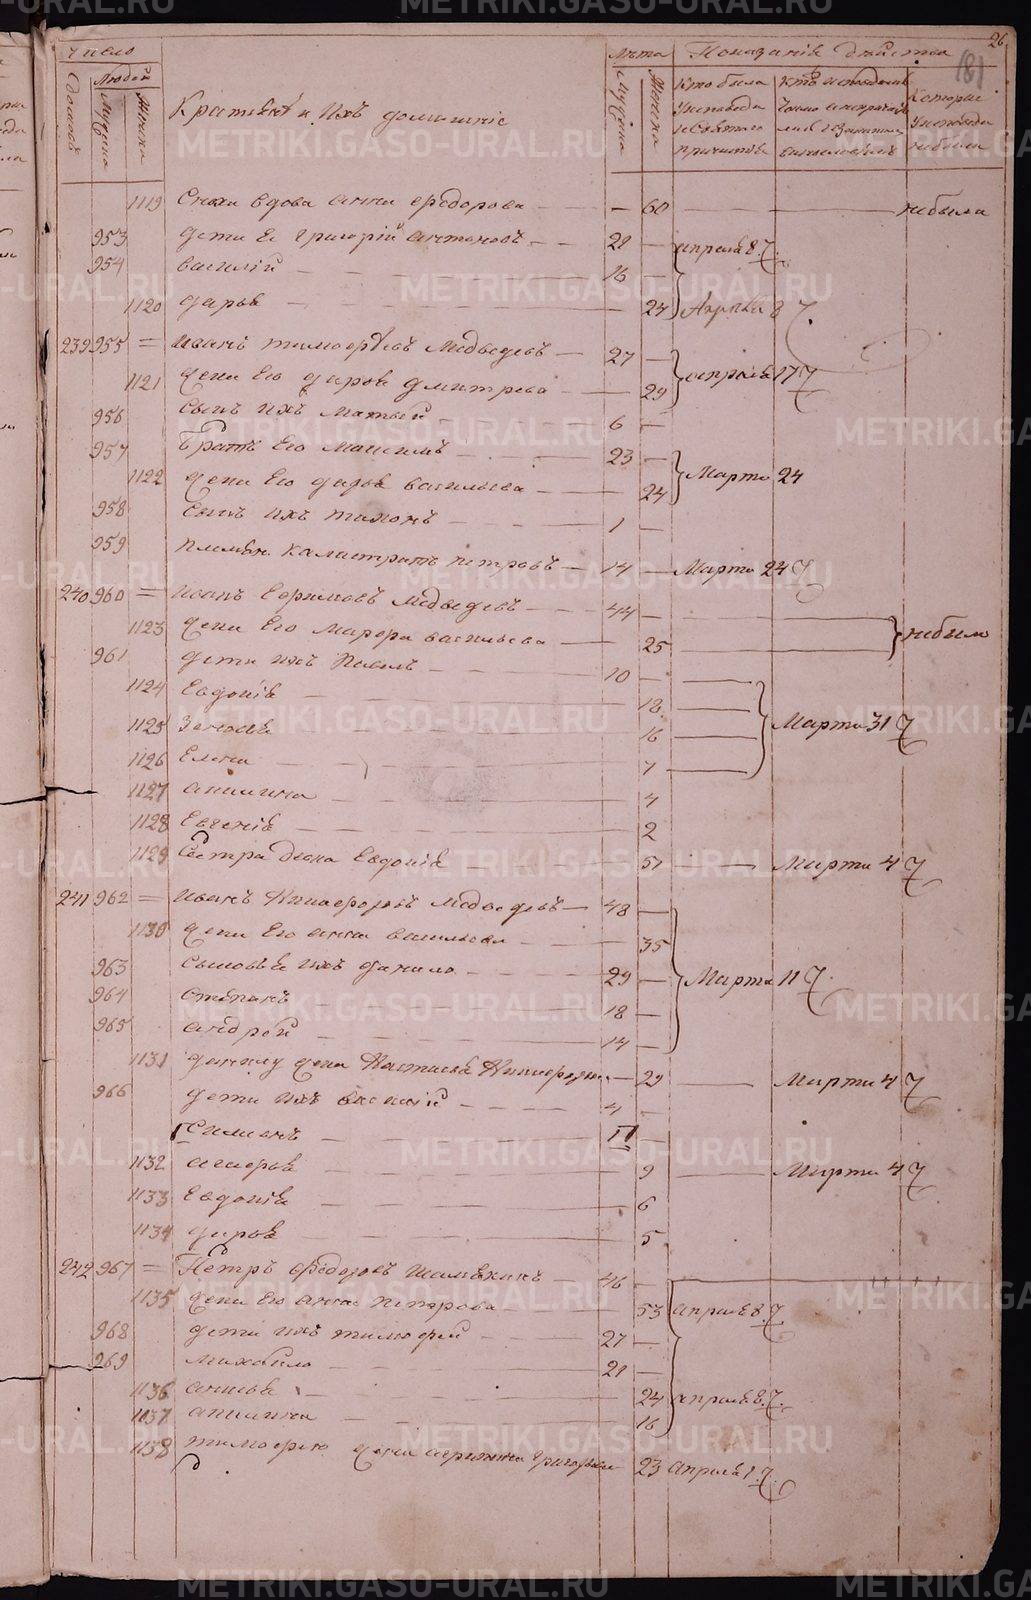 26
(8)
Число
Лѣта
Показаніе Действа
Домовъ
Людей
Мужска
Женска
Крестьяне и Ихъ домашніе
Мужска
Женска
Кто были
У исповеди
и Святаго
причастія
Которые
У исповеди
небыли
1119 Сноха вдова анна федорова — 60 — небыла
953 дети Ее григорій антоновъ — 22 — апреля 8. 7.
954 василій — 16 —
1120 дарья — 24 Апреля 8 7.
239 955 = Иванъ тимофеевъ Медведевъ — 27 — апреля 17 7
1121 жена Его дарья дмитрева — 29
956 сынъ ихъ Матвей — 6 —
957 братъ Его Максимъ — 23 — Марта 24
1122 жена Его дарья васильева — 24
958 сынъ ихъ тихонъ — 1 —
959 племян. калистратъ петровъ — 14 — Марта 24 7
240 960 = Иванъ Ефимовъ медведевъ — 44 — небыли
1123 жена Его марфа васильева — 25
961 дети ихъ Павелъ — 10 —
1124 Евдокія — 18 Марта 31 7
1125 Зеновья — 16
1126 Елена — 7
1127 акилина — 4
1128 Евгенія — 2
1129 Сестра девка Евдокія — 57 — Марта 4 7
241 962 = Иванъ Никифоровъ медведевъ — 48 —
1130 жена Его анна васильева — 35
963 сыновья ихъ данило — 29 — Марта 11 7.
964 степанъ — 18 —
965 андрей — 14 —
1131 данилу жена Настасья — 29 — Марта 4 7
966 дети ихъ василій — 4 —
симионъ
1132 агафья — 9 — Марта 4 7
1133 Евдокія — 6
1134 дарья — 5
242 967 = Петръ Федоровъ — 46 —
1135 жена Его анна петрова — 53 апреля 8. 7
968 дети ихъ тимофей — 27 —
969 михайло — 21 —
1136 анисья — 24 апреля 8. 7.
1137 акилина — 16
1138 тимофею жена григорьева 23 апреля 1. 7.
METRIKI.GASO-URAL.RU